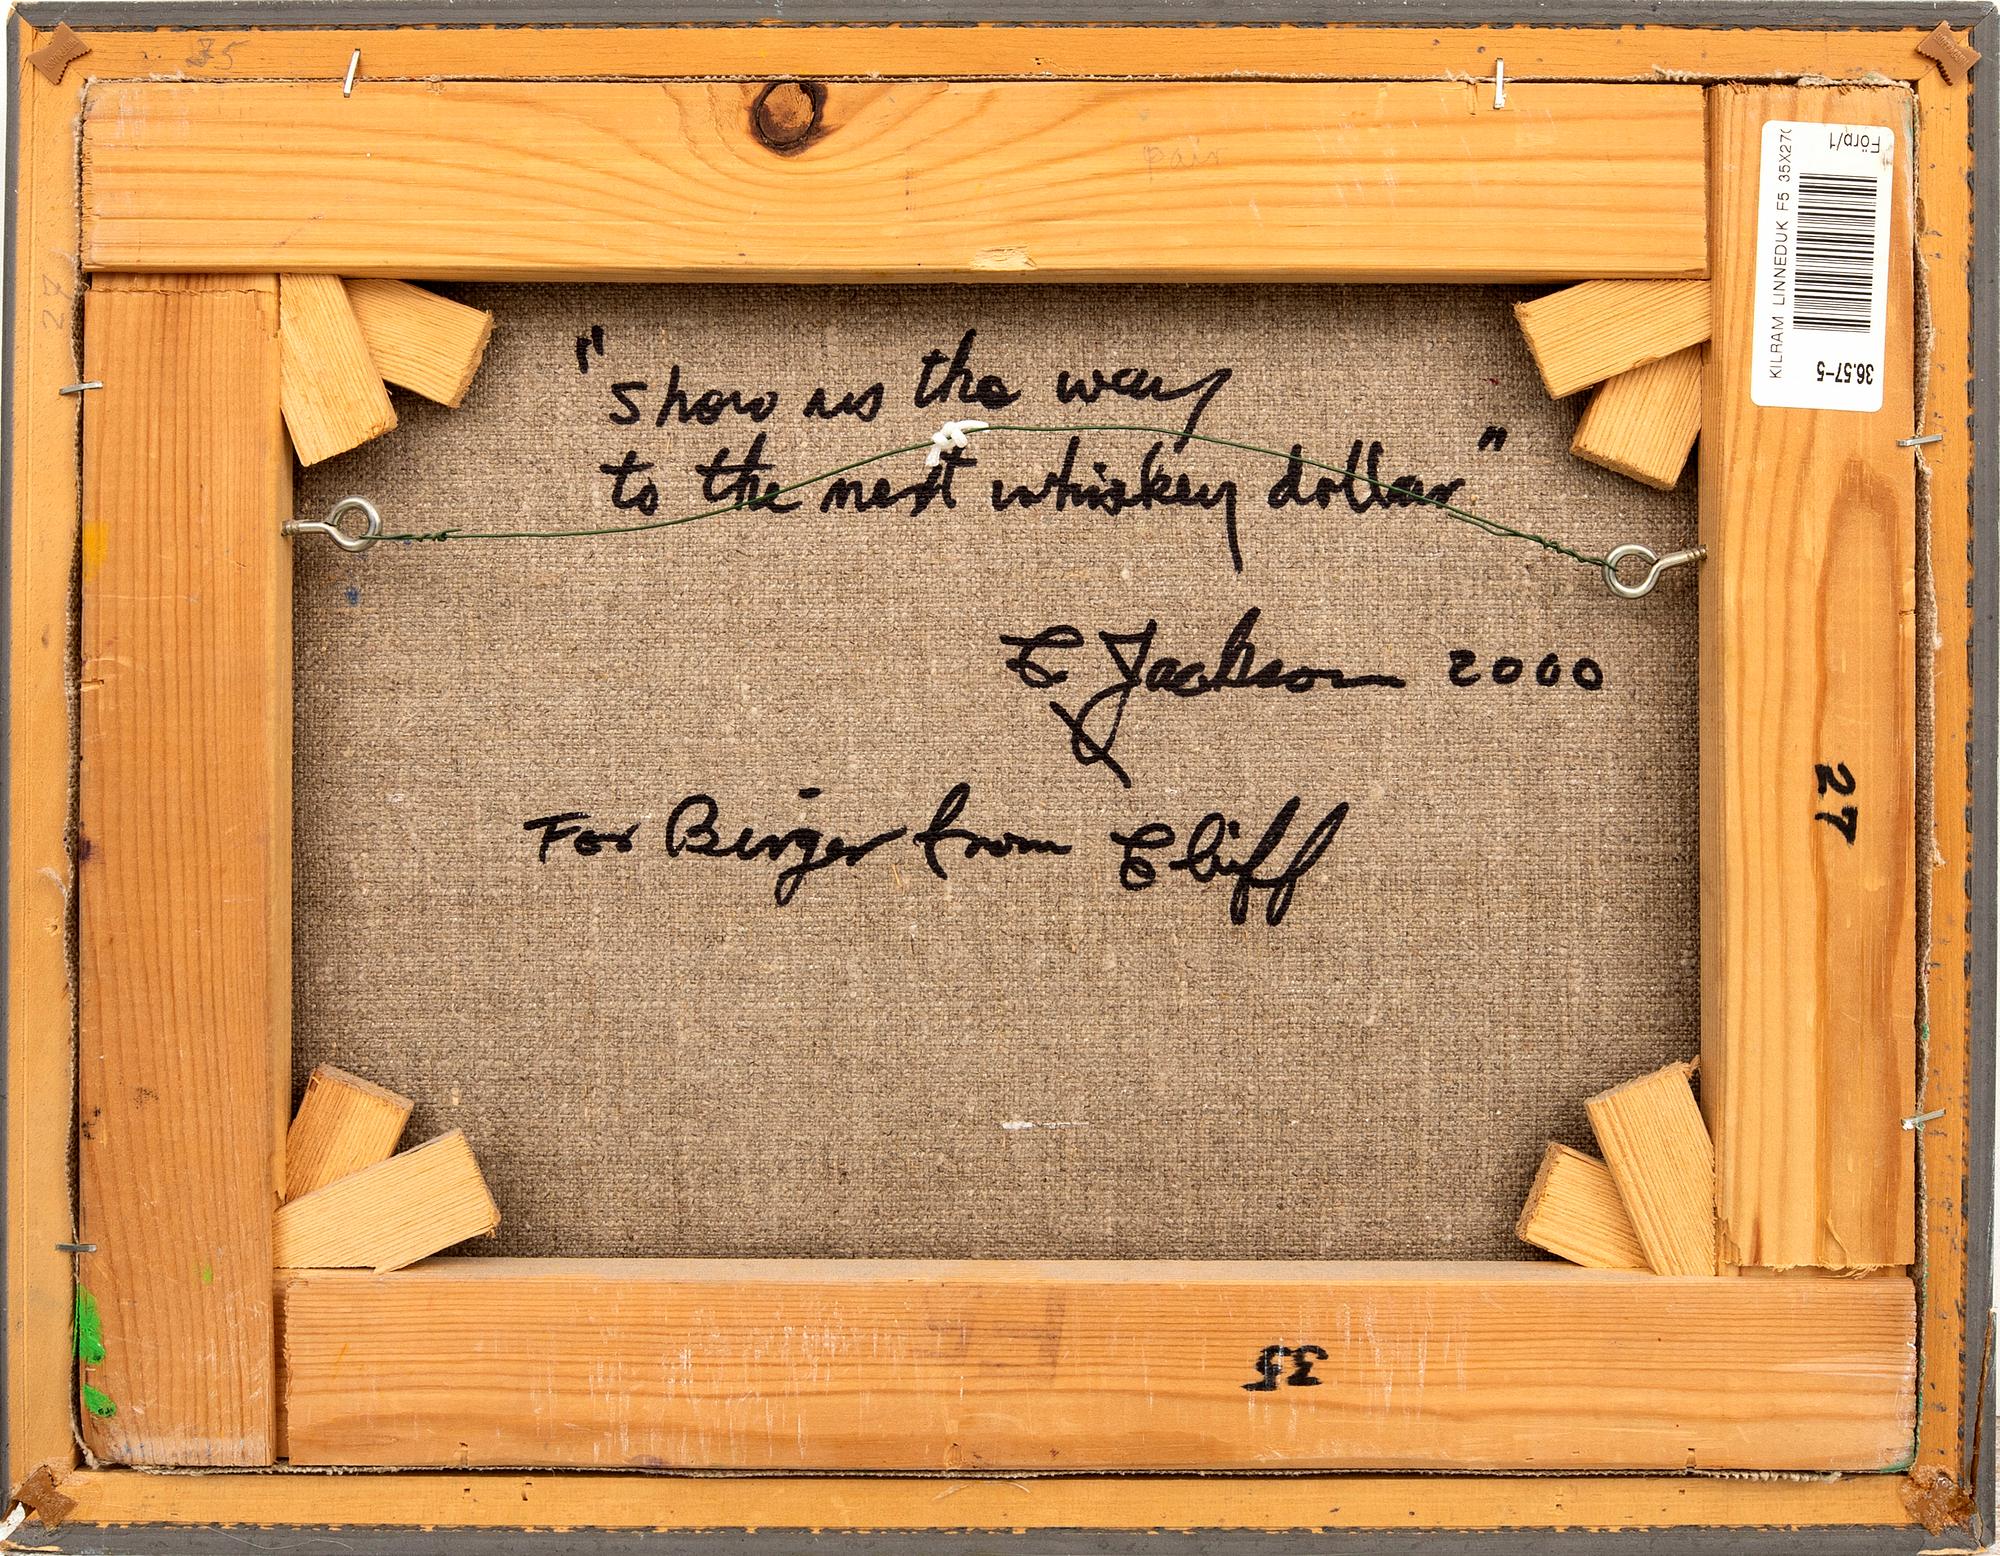 75
pair
KILRAM LINNEDUK F5 35X270
Förp/1
36.57-5
27
"show us the way
to the next whiskey dollar"
C Jackson 2000
For Birger from Cliff
27
35